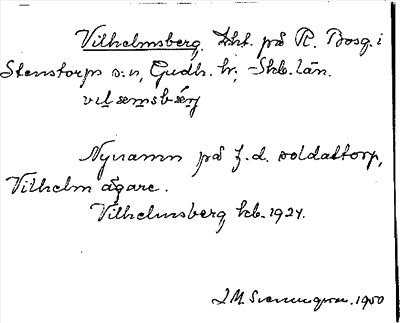 Vilhelmsberg. Lht. på R. Bosg. i
Stenstorps s:n, Gudh. hr, Skb. län.
vɪlsemsbærj
Nynamn på f.d. soldattorp,
Vilhelm ägare.
Vilhelmsberg kb. 1924.
1950